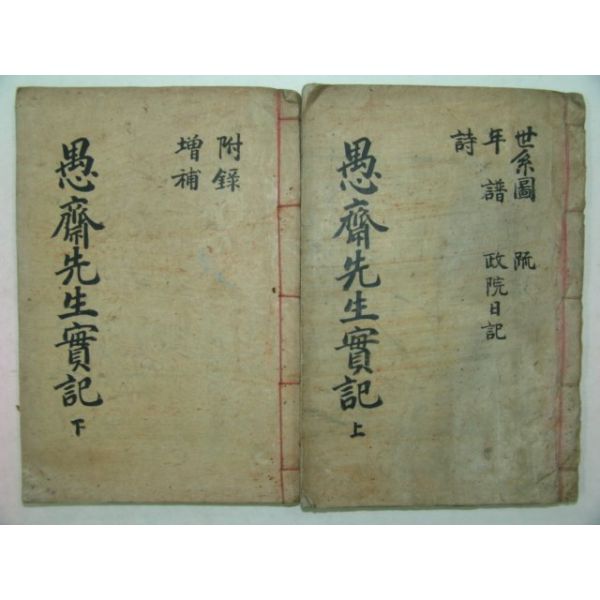 世系圖 疏
年譜 政院日記
詩
愚齋先生實記
上
附錄
增補
愚齋先生實記
下